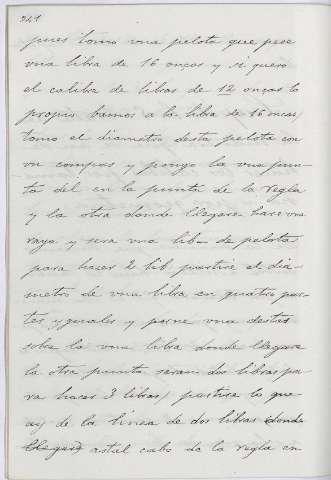 221
pues tomo vna pelota que pese
vna libra de 16 onças y si quero
el calibre de libras de 12 onças lo
propio bamos a la libra de 16 oncas,
tomo el diametro desta pelota con
vn compas y pongo la vna pun-
ta del en la punta de la regla
y la otra donde llegare hare vna
raya y sera vna lib- de pelota
para hacer 2 lib partire el dia-
metro de vna libra en quatro par-
tes yguales y porne vna destas
sobre la vna libra donde llegare
la otra punta seran dos libras pa-
ra hacer 3 libras, partire lo que
ay de la linea de dos libras donde
llegare astal cabo de la regla en